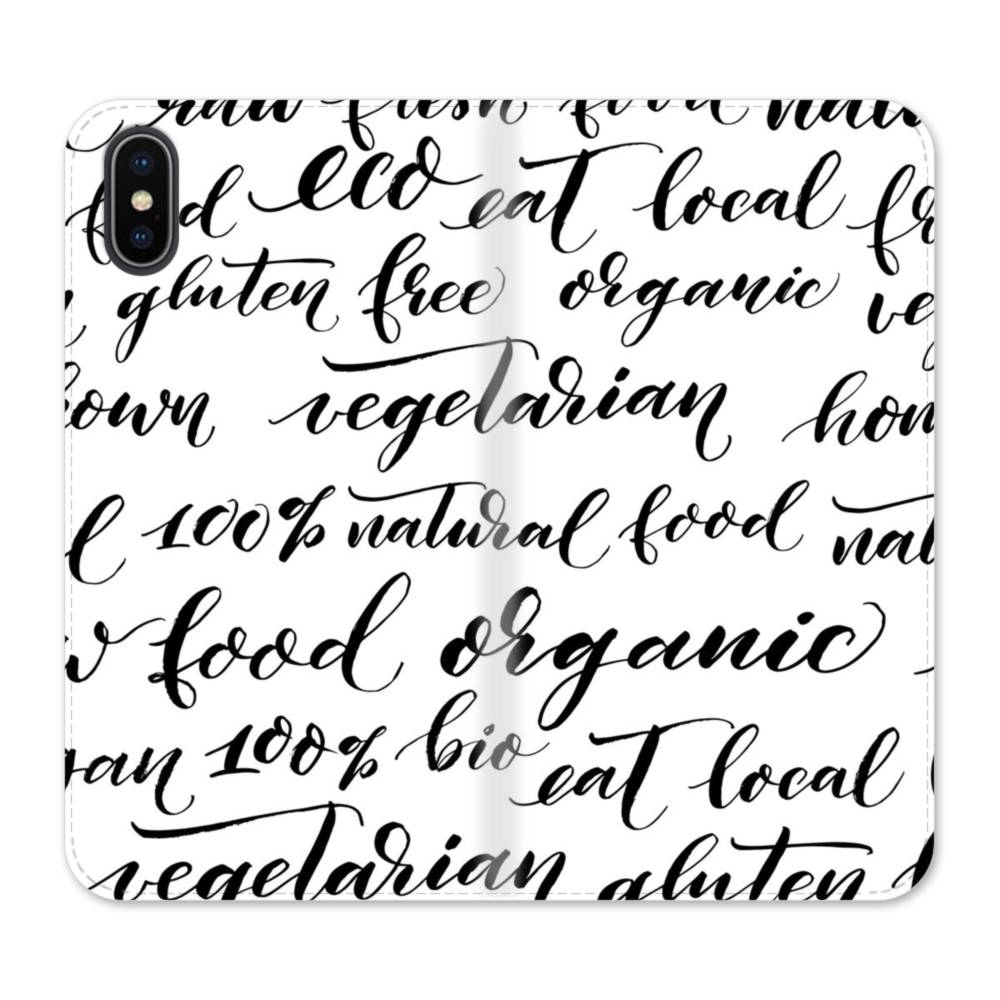 raw fresh food
food eco eat local
gluten free organic
vegetarian
100% natural food
food organic
100% bio eat local
vegetarian gluten